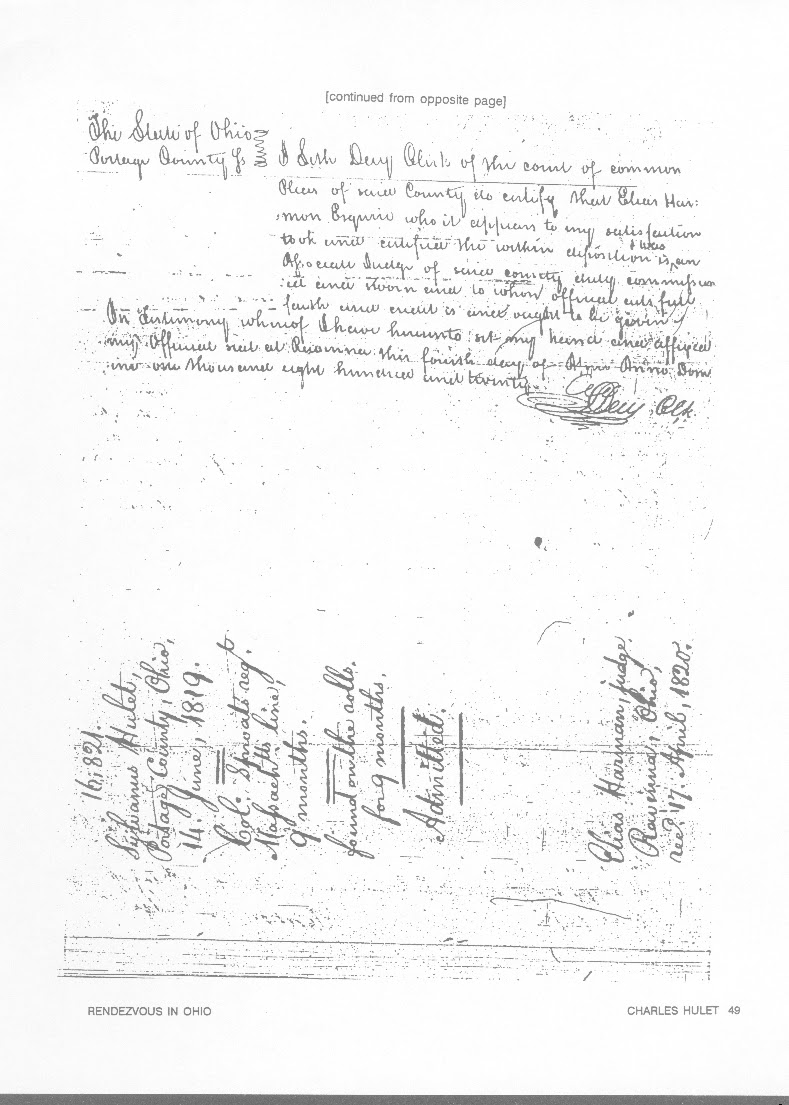 [continued from opposite page]
The State of Ohio
Portage County Ss
I Seth Day Clerk of the court of common
Pleas of said County do certify that Elias Har=
mon Esquire who it appears to my satisfaction
took and certified the within deposition is, & was an
Associate Judge of said county duly commission
ed and sworn and to whose official acts full
faith and credit is and ought to be given
In Testimony whereof I have hereunto set my hand and affixed
my Official seal at Ravenna this fourth day of Anno Dom
ini one thousand eight hundred and twenty.
SDay Clk.
16,821.
Sylvanus Hulet,
Portage County, Ohio,
14. June, 1819.
Col. Sproats reg.
Massachtts line,
9 months.
found on the rolls.
for 9 months.
Admitted.
Elias Harman, judge.
Ravenna, Ohio,
recd. 17. April, 1820.
RENDEZVOUS IN OHIO
CHARLES HULET 49